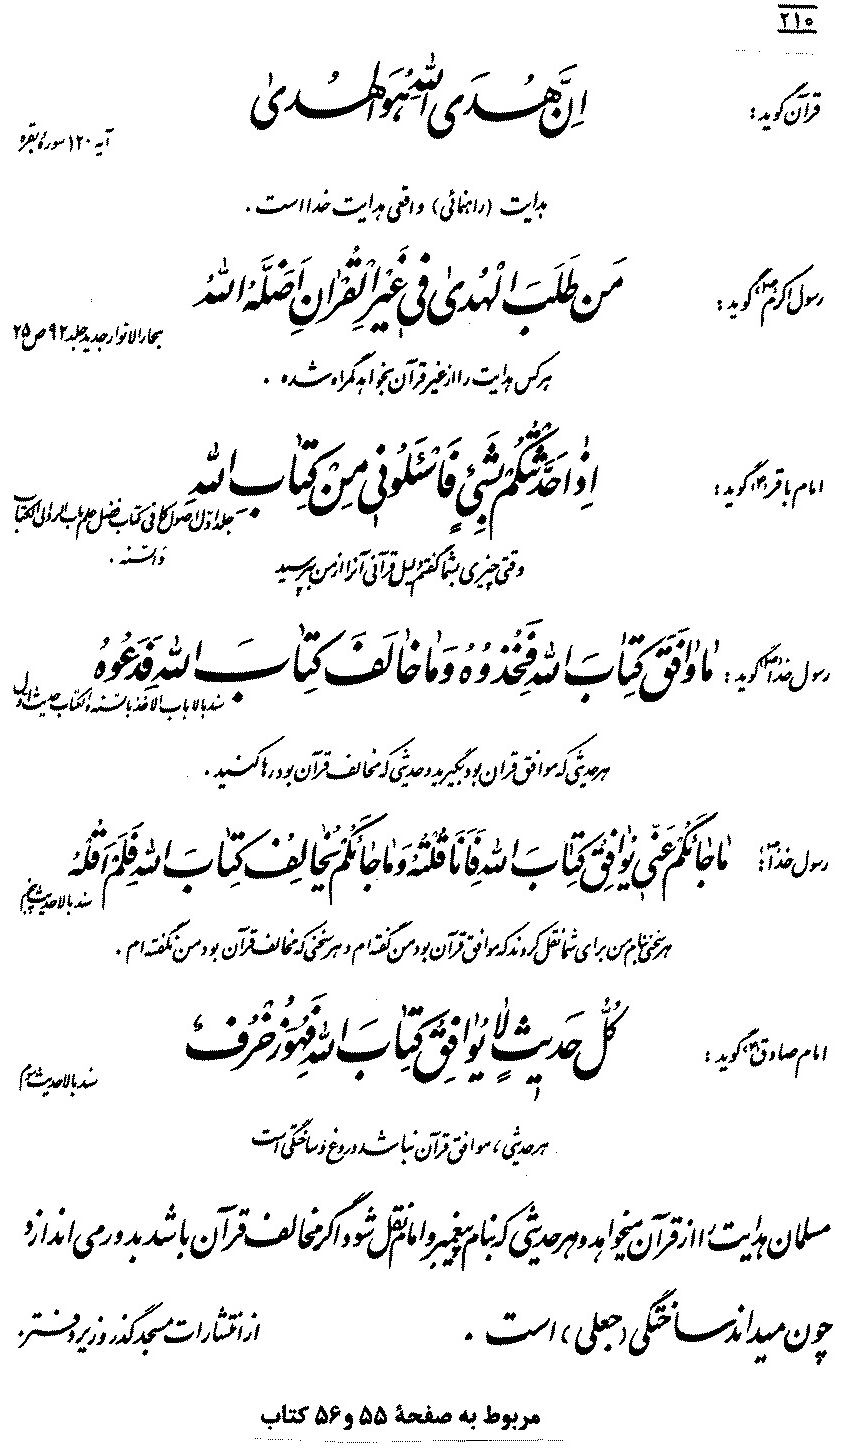 ۲۱۰
قرآن گوید: اِنَّ هُدَی اللهِ هُوَ الهُدیٰ
آیه ۱۲۰ سورهٔ بقره
هدایت (راهنمائی) واقعی هدایت خدا است.
رسول اکرم (ص) گوید: مَن طَلَبَ الْهُدیٰ فی غَیْرِ الْقُرْاٰنِ اَضَلَّهُ اللهُ
بحارالانوار جدید جلد ۹۲ ص ۲۵
هر کس هدایت را از غیر قرآن بخواهد گمراه شده.
امام باقر (ع) گوید: اِذٰا حَدَّثْتُکُمْ بِشَیْئٍ فَاسْئَلُونی مِنْ کِتٰابِ الله
جلد اول اصول کافی کتاب فضل علم باب الرد الی الکتاب
والسنه.
وقتی چیزی بشما گفتم دلیل قرآنی آنرا از من بپرسید
رسول خدا (ص) گوید: مٰا وٰافَقَ کِتٰابَ اللهِ فَخُذُوهُ وَ مٰا خٰالَفَ کِتٰابَ اللهِ فَدَعُوهُ
سند بالا باب الاخذ بالسنه و الکتاب حدیث اول
هر حدیثی که موافق قرآن بود بگیرید و حدیثی که مخالف قرآن بود رها کنید.
رسول خدا (ص): مٰا جٰائَکُمْ عَنّی یُوٰافِقُ کِتٰابَ اللهِ فَاَنَا قُلْتُهُ وَ مٰا جٰائَکُمْ یُخٰالِفُ کِتٰابَ اللهِ فَلَمْ اَقُلْهُ
سند بالا حدیث پنجم
هر سخنی بنام من برای شما نقل کردند که موافق قرآن بود من گفته‌ام و هر سخنی که مخالف قرآن بود من نگفته‌ام.
امام صادق (ع) گوید: کُلُّ حَدیثٍ لٰا یُوٰافِقُ کِتٰابَ اللهِ فَهُوَ زُخْرُفٌ
سند بالا حدیث سوم
هر حدیثی، موافق قرآن نباشد دروغ و ساختگی است
مسلمان هدایت را از قرآن میخواهد و هر حدیثی که بنام پیغمبر و امام نقل شود اگر مخالف قرآن باشد بدور می‌اندازد
چون میداند ساختگی (جعلی) است.
از انتشارات مسجد گذر وزیر دفتر.
مربوط به صفحهٔ ۵۵ و ۵۶ کتاب